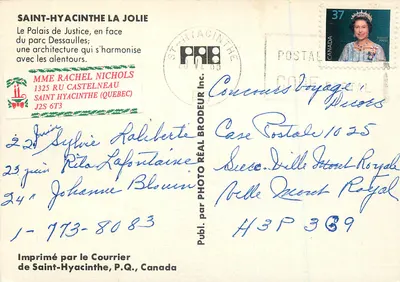 SAINT-HYACINTHE LA JOLIE
Le Palais de Justice, en face
du parc Dessaulles;
une architecture qui s'harmonise
avec les alentours.
MME RACHEL NICHOLS
1325 RU CASTELNEAU
SAINT HYACINTHE (QUEBEC)
J2S 6T3
22 juin Sylvie Laliberté
23 juin Rita Lafontaine
24 " Johanne Blouin
1-773-8083
Imprimé par le Courrier
de Saint-Hyacinthe, P.Q., Canada
PRB
Publ. par PHOTO REAL BRODEUR Inc.
ST-HYACINTHE
POSTAL
37
CANADA
Concours Voyage
Case Postale 1025
Succ. Ville Mont Royale
Ville Mont Royal
H3P 3G9